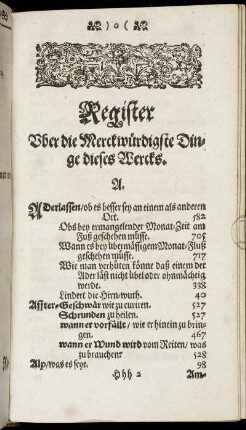 ) o (
Register
Vber die Merckwürdigste Din-
ge dieses Wercks.
A.
ADerlassen/ob es besser sey an einem als anderen
Ort. 582
Obs bey ermangelender Monat-Zeit am
Fuß geschehen müsse. 705
Wann es bey übermässigem Monat-Fluß
geschehen müsse. 717
Wie man verhüten könne daß einem der
Ader läst nicht übel oder ohnmächtig
werde. 338
Lindert die Hirn-wuth. 40
Affter-Geschwär wie zu curiren. 527
Schrunden zu heilen. 527
wann er vorfällt/ wie er hinein zu brin-
gen. 467
wann er Wund wird vom Reiten/ was
zu brauchen? 528
Alp/was es seye. 98
Hhh 2 Am-